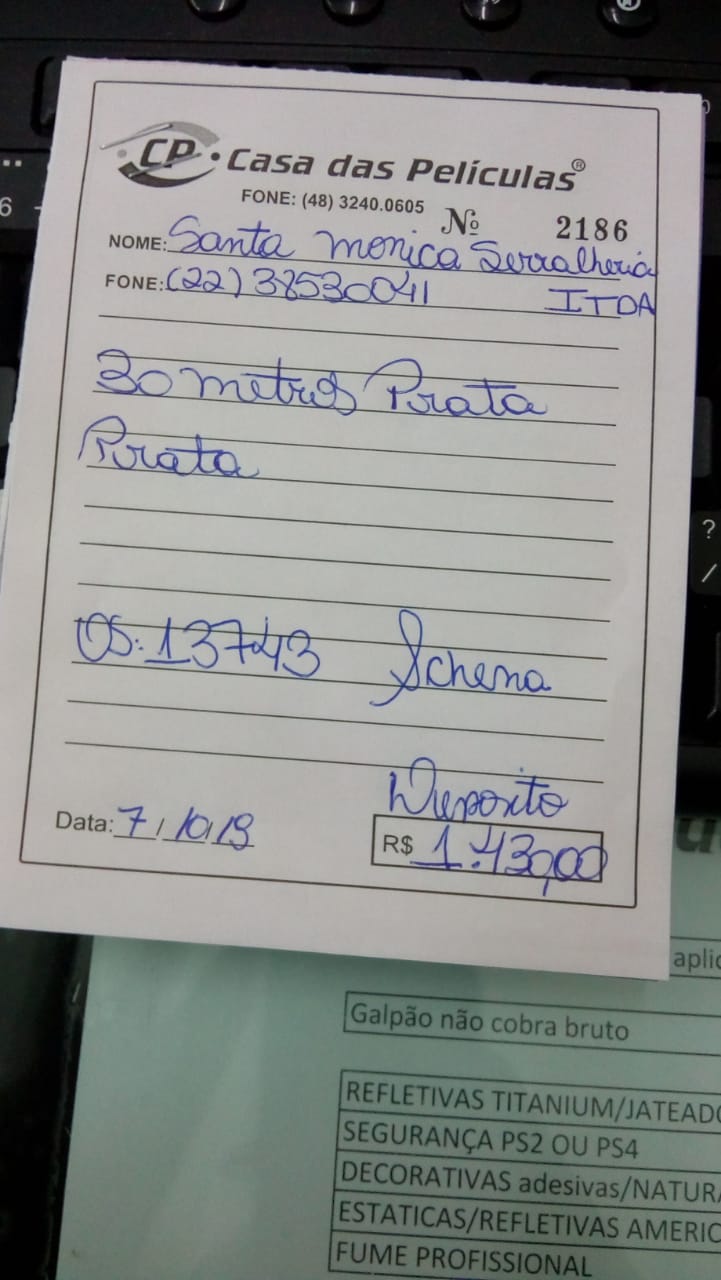 CP
Casa das Películas®
FONE: (48) 3240.0605 Nº 2186
NOME: Santa monica Serralheria
FONE: (22) 38530041 LTDA
30 metros Prata
Prata
OS: 13743 Schena
Deposito
Data: 7/10/19 R$ 1.430,00
aplic
Galpão não cobra bruto
REFLETIVAS TITANIUM/JATEADO
SEGURANÇA PS2 OU PS4
DECORATIVAS adesivas/NATURA
ESTATICAS/REFLETIVAS AMERIC
FUME PROFISSIONAL